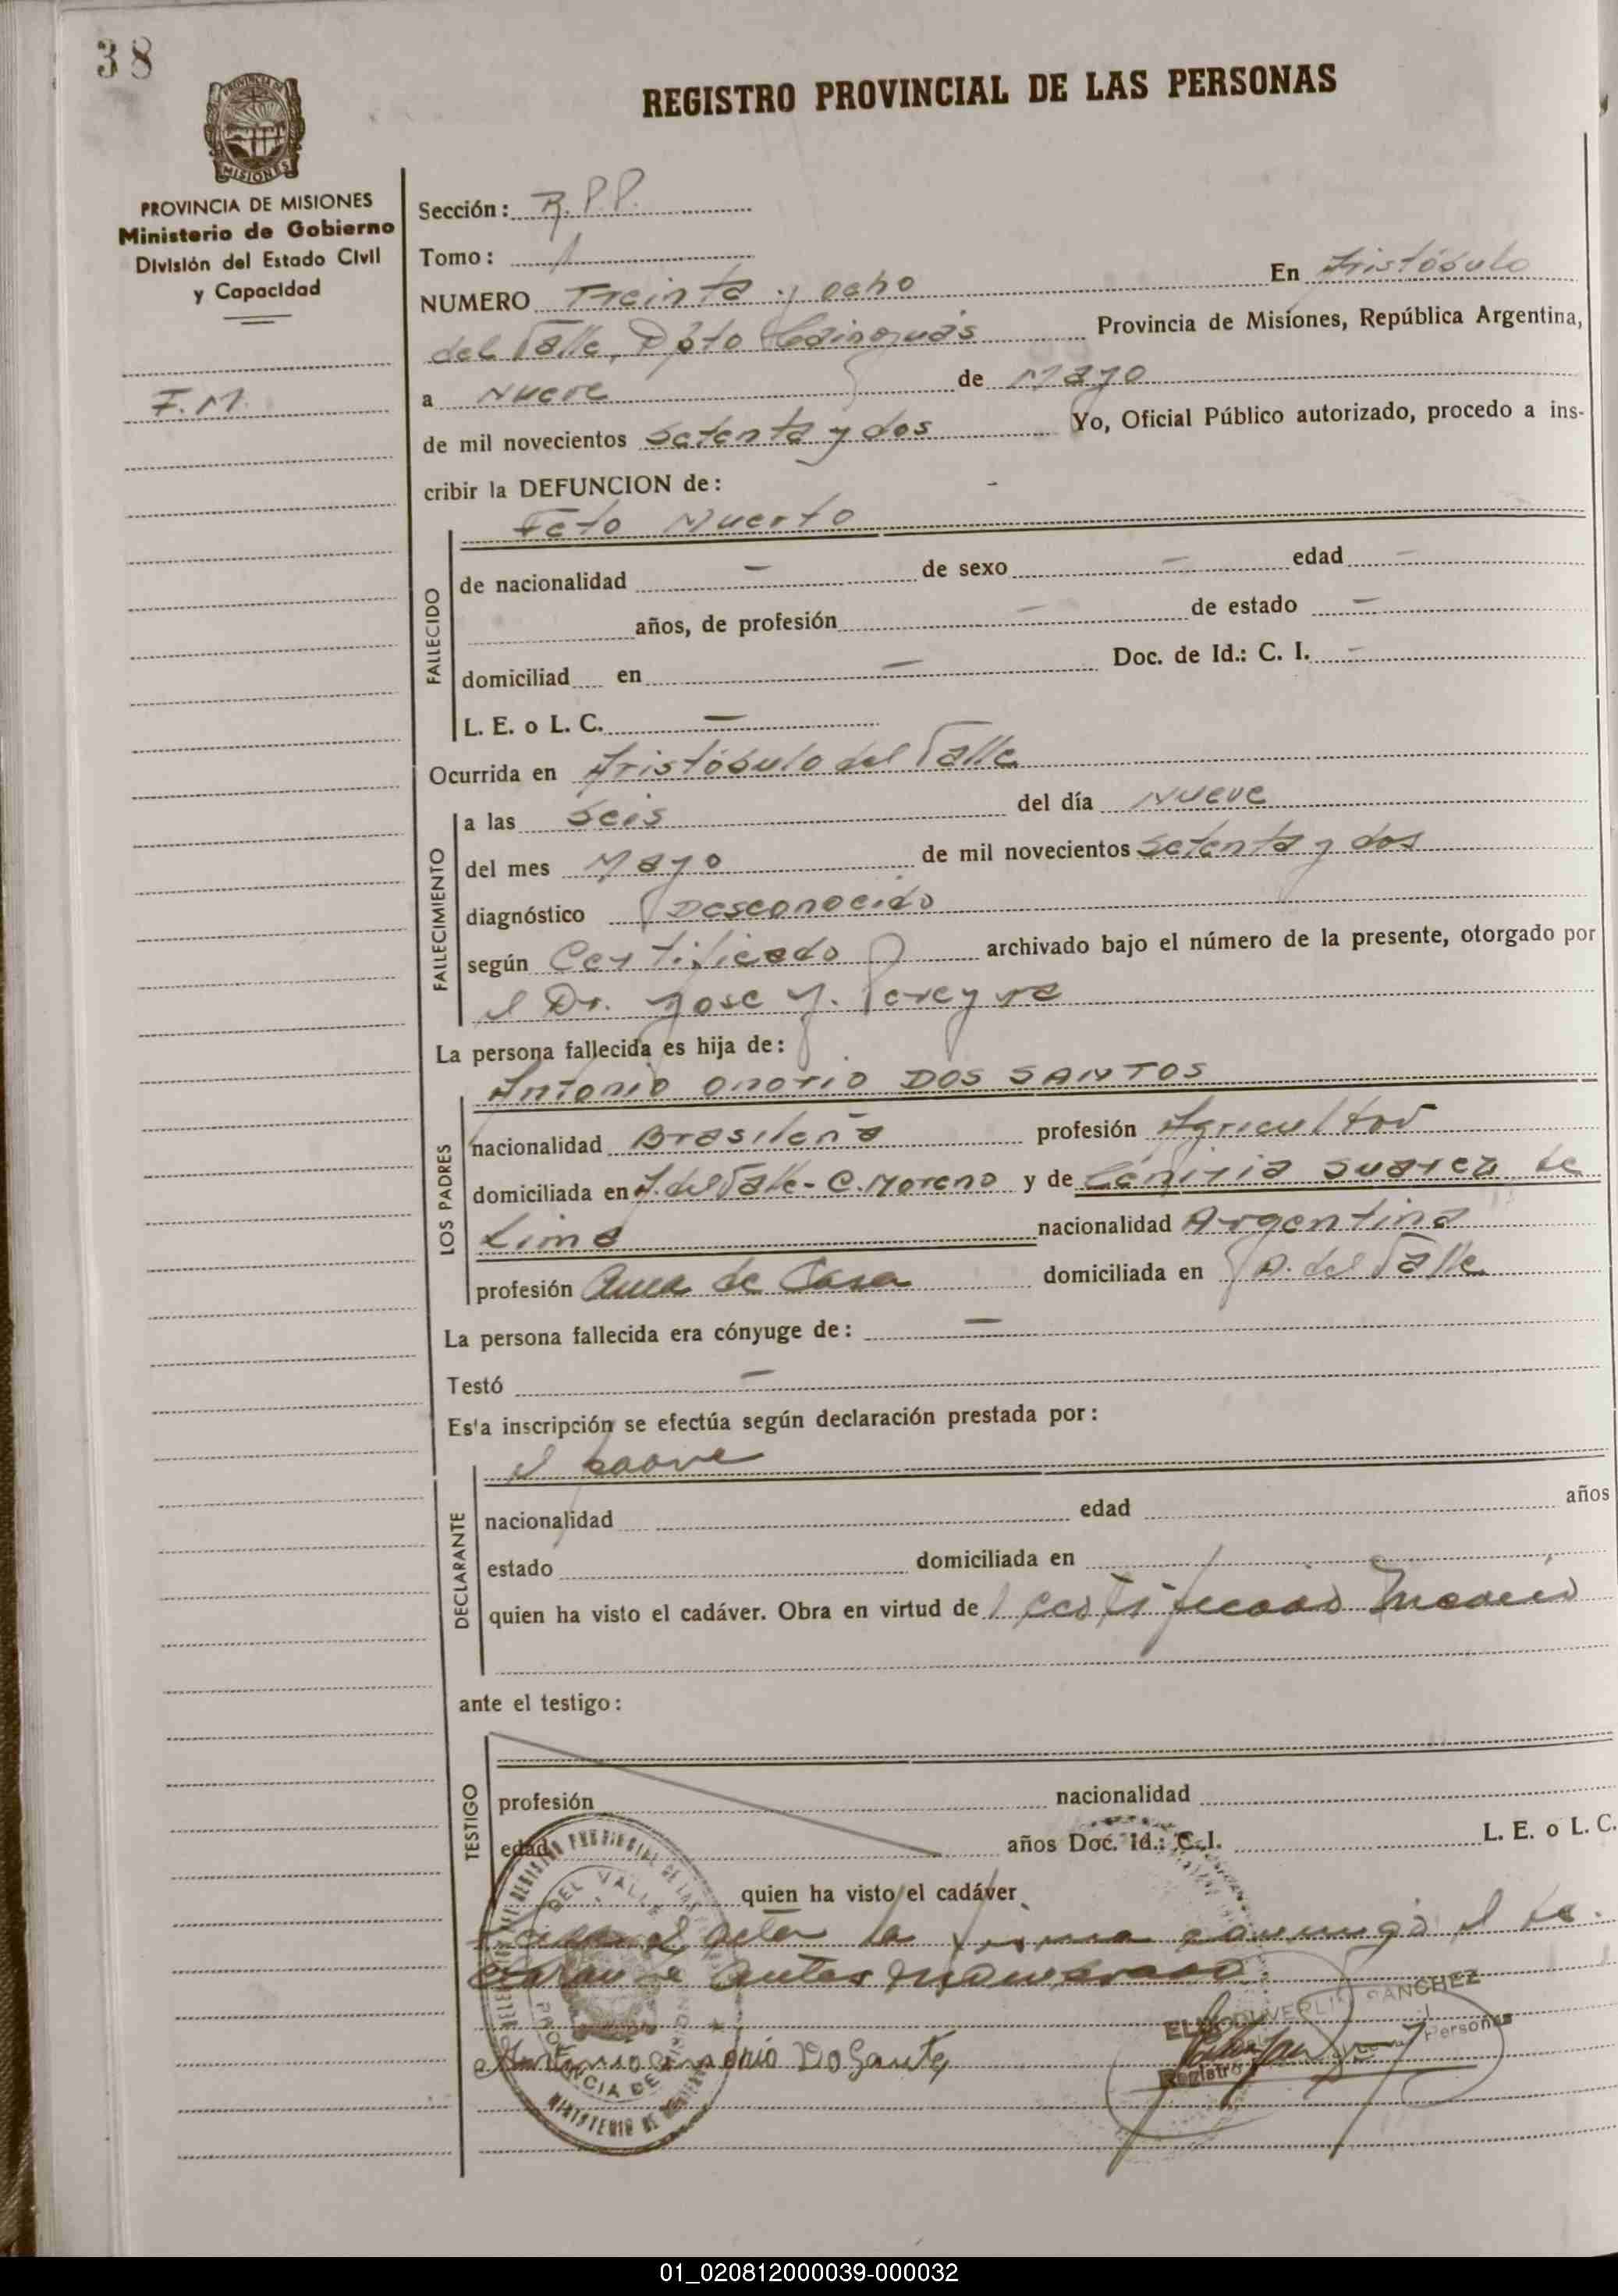 38
REGISTRO PROVINCIAL DE LAS PERSONAS
PROVINCIA DE
MISIONES
PROVINCIA DE MISIONES
Ministerio de Gobierno
División del Estado Civil
y Capacidad
F.M.
Sección: R.P.P.
Tomo: 1
NUMERO Treinta y ocho En Aristóbulo
del Valle, Dpto Cainguás Provincia de Misiones, República Argentina,
a Nueve de Mayo
de mil novecientos Setenta y dos Yo, Oficial Público autorizado, procedo a ins-
cribir la DEFUNCION de:
Feto Muerto
FALLECIDO
de nacionalidad — de sexo — edad —
años, de profesión — de estado —
domiciliad en — Doc. de Id.: C. I. —
L. E. o L. C. —
Ocurrida en Aristóbulo del Valle
FALLECIMIENTO
a las Seis del día Nueve
del mes Mayo de mil novecientos Setenta y dos
diagnóstico Desconocido
según Certificado archivado bajo el número de la presente, otorgado por
el Dr. Jose M. Pereyra
La persona fallecida es hija de:
Antonio Onorio DOS SANTOS
LOS PADRES
nacionalidad Brasileña profesión Agricultor
domiciliada en A. del Valle - C. Moreno y de Suarez de
Lima nacionalidad Argentina
profesión Ama de Casa domiciliada en A. del Valle
La persona fallecida era cónyuge de: —
Testó —
Esta inscripción se efectúa según declaración prestada por:
el padre
DECLARANTE
nacionalidad edad años
estado domiciliada en
quien ha visto el cadáver. Obra en virtud de certificado médico
ante el testigo:
TESTIGO
profesión nacionalidad
edad años Doc. Id.: C. I. L. E. o L. C.
quien ha visto el cadáver
Leída el acta la firma conmigo el de-
clarante antes nombrado.
DEL VALLE
PROVINCIA DE MISIONES
MINISTERIO DE
SANCHEZ
Personas
Registro
Antonio Onorio Do Santos
01_020812000039-000032